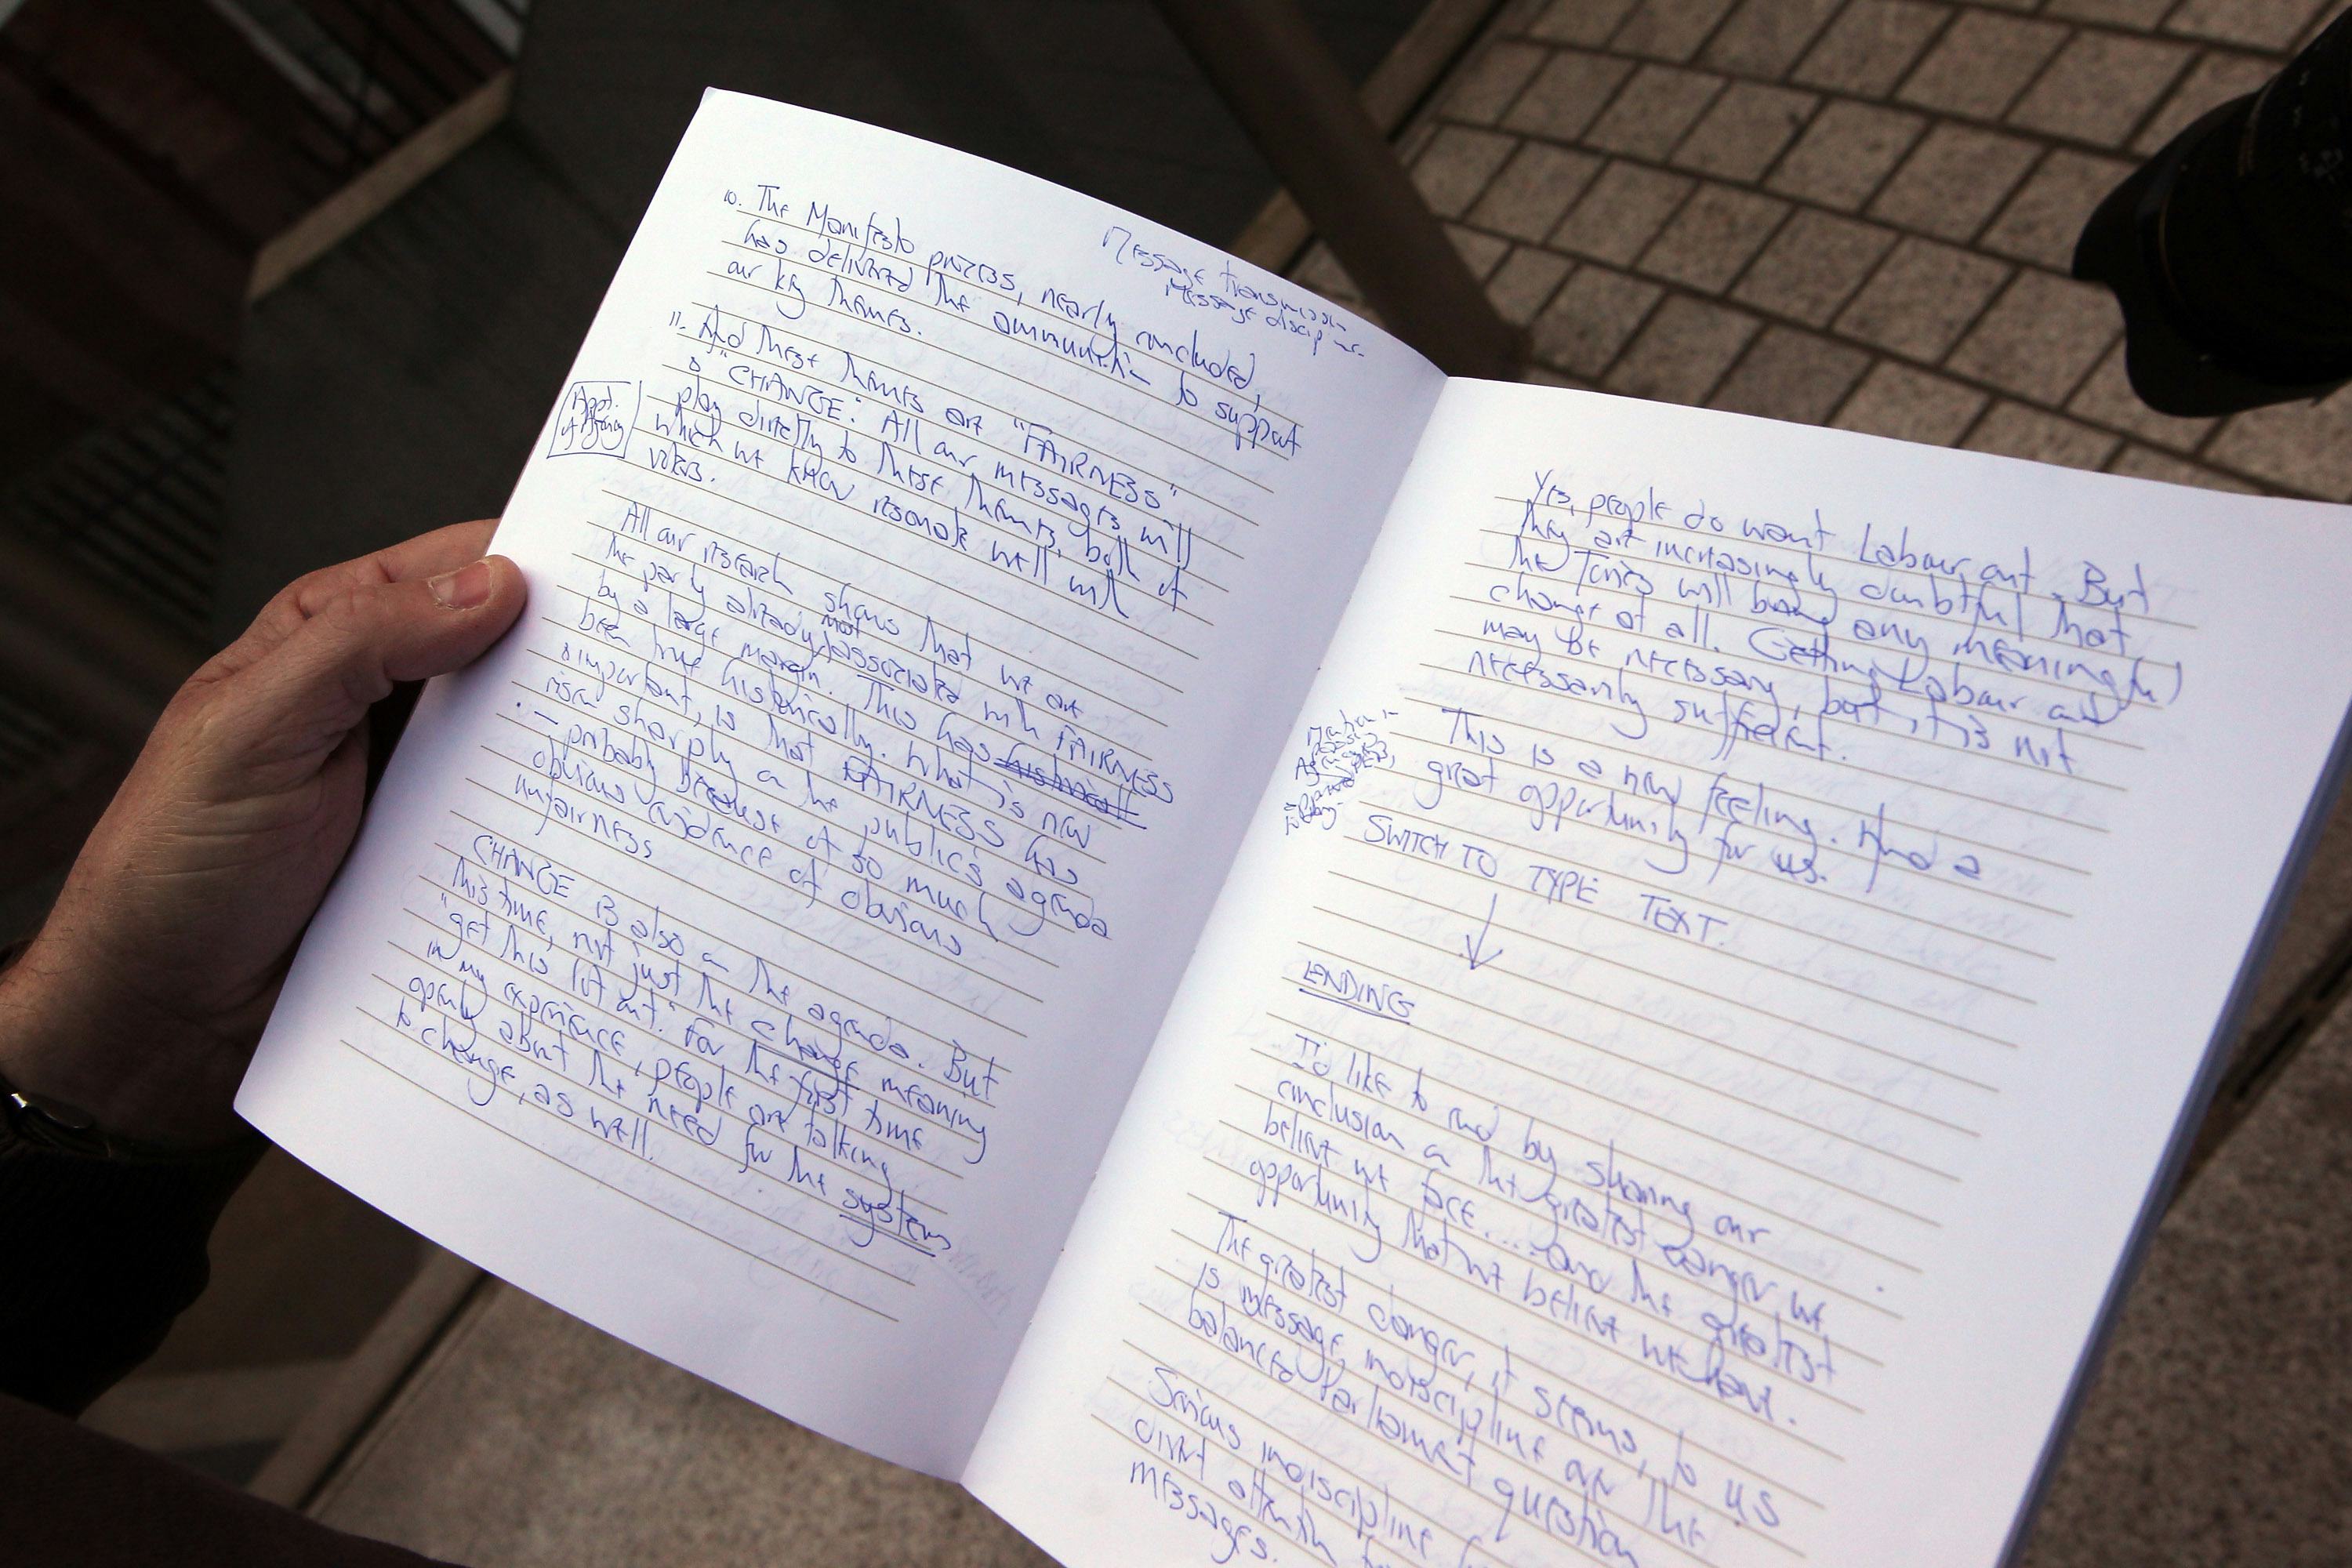 Message transmission
Message discipline
10. The Manifesto process, nearly concluded,
has delivered the ammunition to support
our key themes.
11. And these themes are "FAIRNESS"
& "CHANGE". All our messages will
play directly to these themes, both of
which we know resonate well with
voters.
All our research shows that we are
not
the party already associated with FAIRNESS
by a large margin. This has historically
been true historically. What is new
& important, is that FAIRNESS has
risen sharply on the public's agenda
– probably because of so much
obvious evidence of obvious
unfairness
CHANGE is also on the agenda. But
this time, not just the change meaning
"get this lot out". For the first time
in my experience, people are talking
openly about the need for the system
to change, as well.
Yes, people do want Labour out. But
they are increasingly doubtful that
the Tories will bring any meaningful
change at all. Getting Labour out
may be necessary, but it is not
necessarily sufficient.
This is a new feeling. And a
great opportunity for us.
SWITCH TO TYPE TEXT.
ENDING
I'd like to end by sharing our
conclusion on the greatest danger we
believe we face.... and the greatest
opportunity that we believe we have.
The greatest danger, it seems, to us
is message indiscipline on the
balanced Parliament question
Serious indiscipline
divert attention
messages.